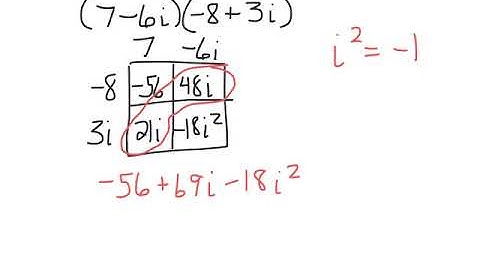 (7-6i)(-8+3i)
7 -6i
i² = -1
-8 -56 48i
3i 21i -18i²
-56+69i-18i²